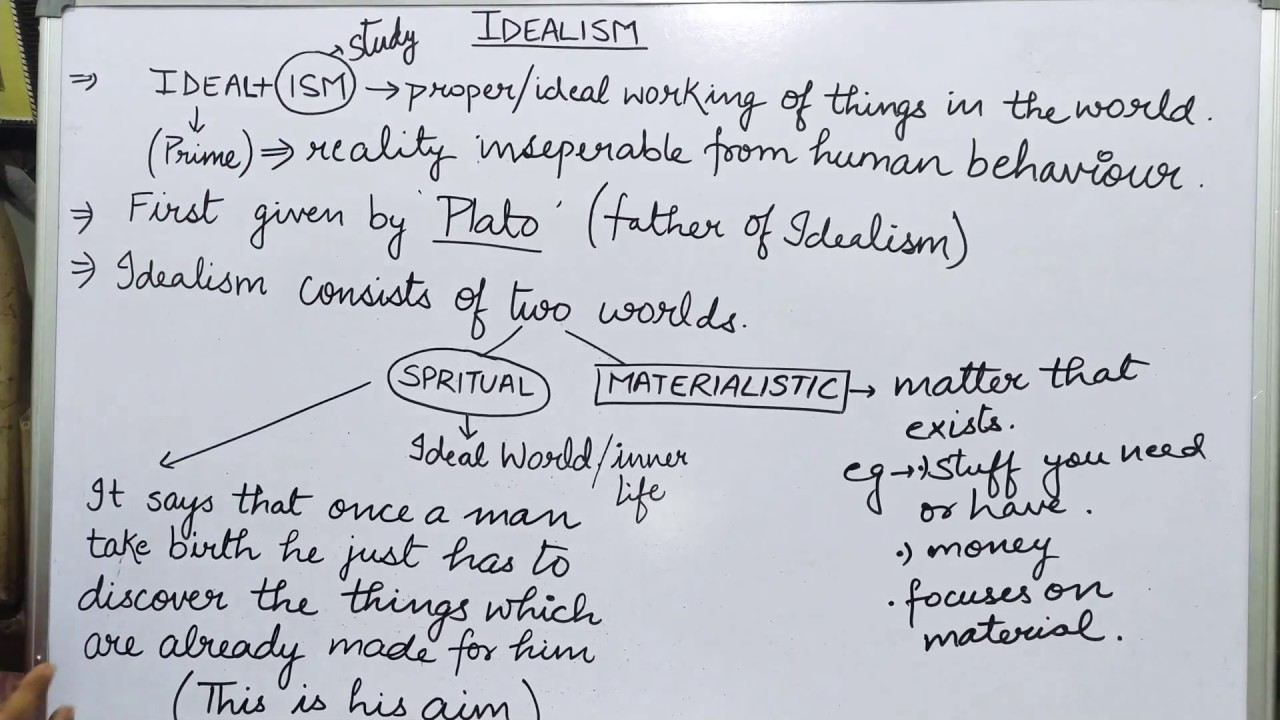 IDEALISM
study
⇒ IDEAL+ISM → proper/ideal working of things in the world.
(Prime) ⇒ reality inseperable from human behaviour.
⇒ First given by 'Plato' (father of Idealism)
⇒ Idealism consists of two worlds.
SPRITUAL
MATERIALISTIC → matter that
exists.
Ideal World/inner
life
eg → •) Stuff you need
or have.
•) money
• focuses on
material.
It says that once a man
take birth he just has to
discover the things which
are already made for him
(This is his aim)